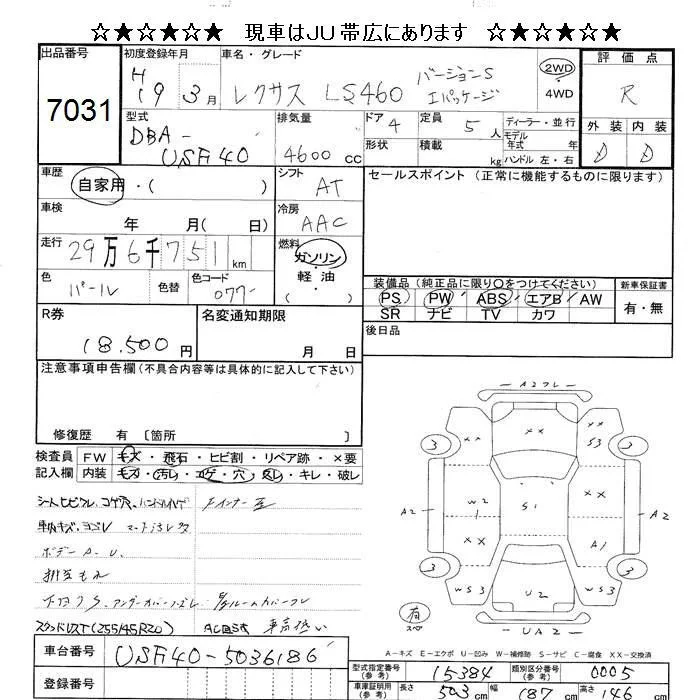 ☆★☆★☆★ 現車はJU帯広にあります ☆★☆★☆★
出品番号
7031
初度登録年月
H 19 3月
車名・グレード
レクサス LS460 バージョンS
Iパッケージ
2WD
4WD
評価点
R
外装 内装
D D
型式
DBA-
USF40
排気量
4600 cc
ドア 4
形状
定員 5 人
積載 kg
ディーラー・並行
モデル
年式 年
ハンドル 左・右
車歴
自家用・( )
シフト
AT
セールスポイント(正常に機能するものに限ります)
車検
年 月( 日)
冷房
AAC
走行
29万6千751km
燃料
ガソリン
・
軽油
・
色
パール
色替
色コード
077
装備品(純正品に限り○をつけてください)
PS PW ABS エアB AW
SR ナビ TV カワ
新車保証書
有・無
R券
18,500円
名変通知期限
月 日
後日品
注意事項申告欄(不具合内容等は具体的に記入して下さい)
修復歴 有 〔箇所 〕
検査員
記入欄
FW キズ・飛石・ヒビ割・リペア跡・×要
内装 キズ・汚レ・コゲ・穴・スレ・キレ・破レ
シートヒビワレ、コゲ穴、
車内キズ、ヨゴレ
ボデーA-U
下回りS、アンダーカバーズレ、
スタッドレスT(255/45R20) AC
車高低い
車台番号
USF40-5036186
登録番号
A2フレ
3 ×× S3 3
A2 W2 S1 ×× A2
×× A1
3 WS3 U2 WS3 3
有
スペア
UA2
A-キズ E-エクボ U-凹み W-補修跡 S-サビ C-腐食 XX-交換済
型式指定番号
(参考)
15384
類別区分番号
(参考)
0005
車庫証明用
(参考)
長さ 503 cm
幅 187 cm
高さ 146 cm